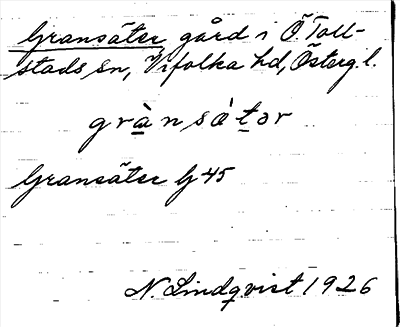 Gransäter, gård i Ö. Toll-
stads sn, Vifolka hd, Österg. l.
grànsä̀tər
Gransäter Gj 45
N. Lindqvist 1926